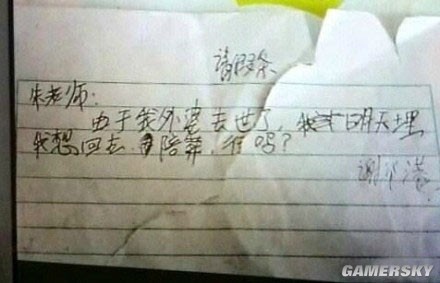 请假条
朱老师:
由于我外婆去世了,明天埋
我想回去陪葬,行吗?
GAMERSKY